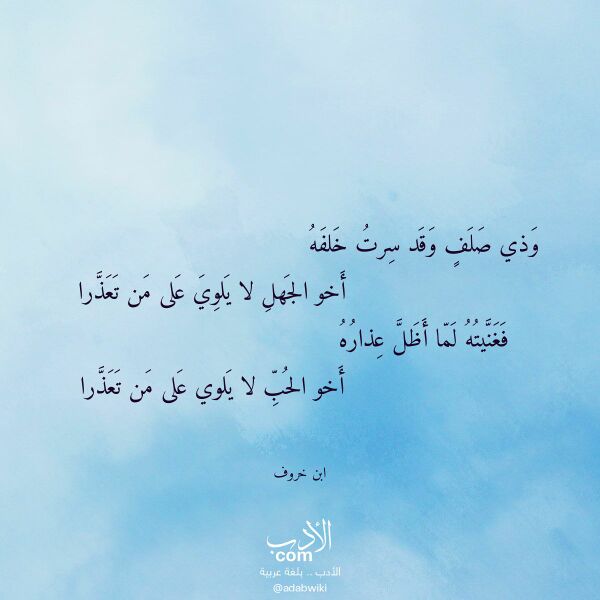 وَذي صَلَفٍ وَقَد سِرتُ خَلفَهُ
أَخو الجَهلِ لا يَلوِيَ عَلى مَن تَعَذَّرا
فَغَنَّيتُهُ لَمّا أَظَلَّ عِذارُهُ
أَخو الحُبِّ لا يَلوي عَلى مَن تَعَذَّرا
ابن خروف
الأدب
com
الأدب .. بلغة عربية
@adabwiki